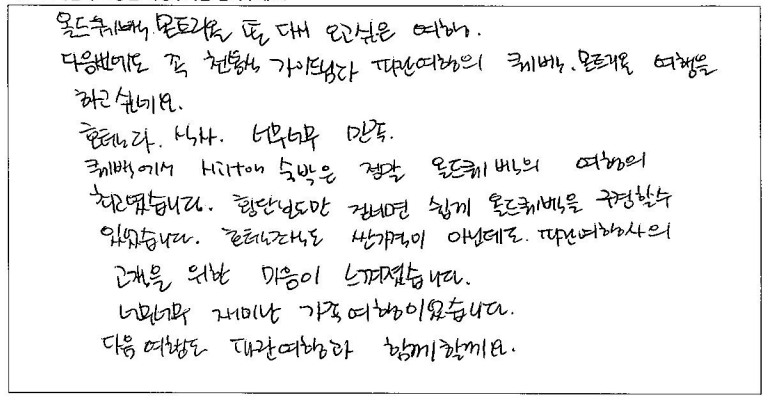 올드퀘백. 몬트리올 또 다시 오고싶은 여행.
다음번에도 꼭 가이드님과 파란여행의 퀘벡. 몬트리올 여행을
하고싶네요.
호텔과. 식사. 너무너무 만족.
퀘백에서 Hilton 숙박은 정말 올드퀘벡의 여행의
최고였습니다. 횡단보도만 건너면 쉽게 올드퀘백을 구경할수
있었습니다. 싼가격이 아닌데도. 파란여행사의
고객을 위한 마음이 느껴졌습니다.
너무너무 재미난 가족여행이였습니다.
다음 여행도 파란여행과 함께할께요.